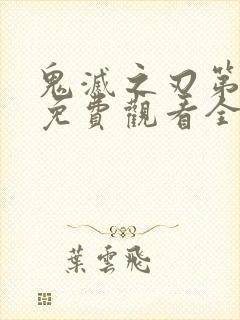 鬼滅之刃第
免費觀看全
葉雲飛